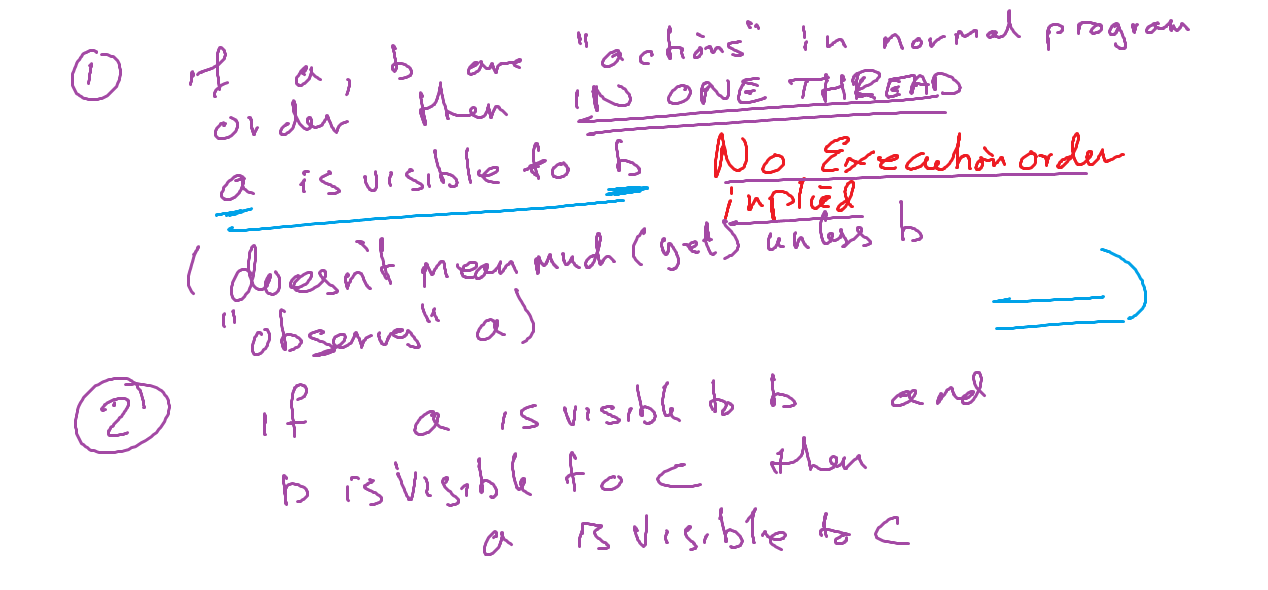 ① if a, b are "actions" in normal program
order then IN ONE THREAD
a is visible to b No Execution order
implied
(doesn't mean much (yet) unless b
"observes" a)
② if a is visible to b and
b is visible to c then
a is visible to c